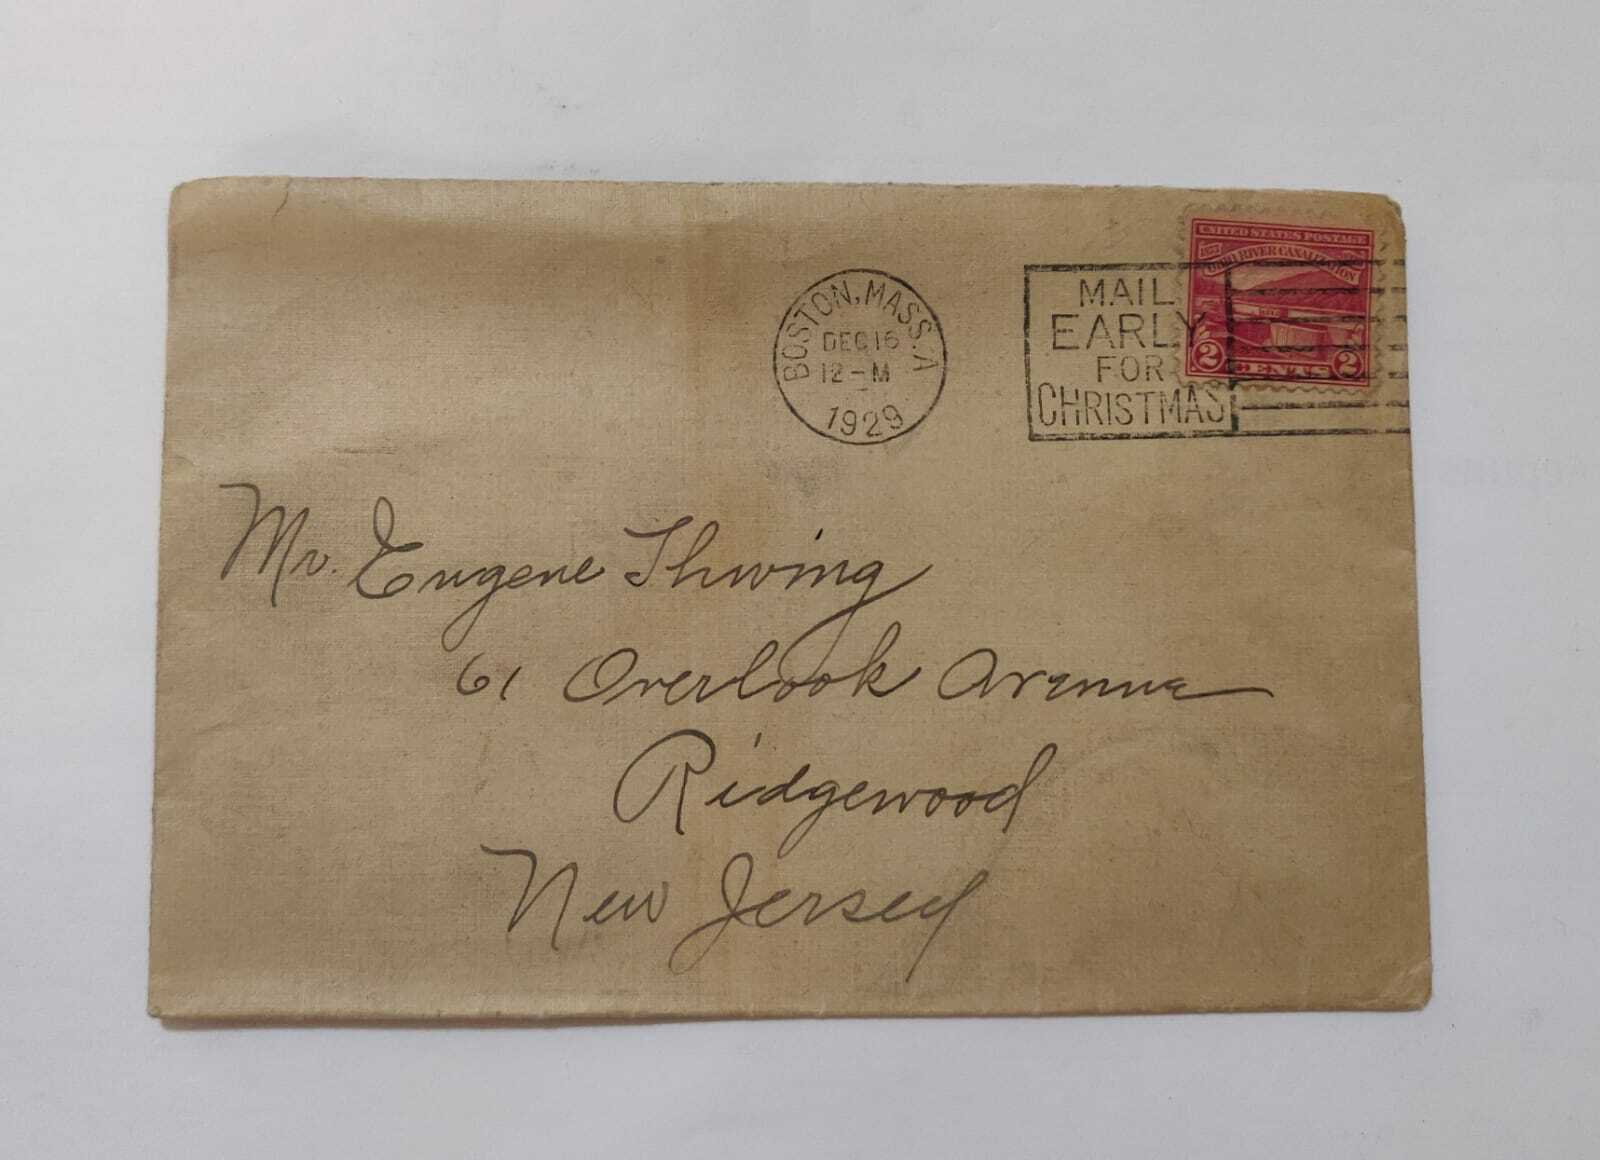 UNITED STATES POSTAGE
OHIO RIVER CANALIZATION
2 CENTS 2
BOSTON, MASS. A
DEC 16
12-M
1929
MAIL
EARLY
FOR
CHRISTMAS
Mr. Eugene Thwing
61 Overlook Avenue
Ridgewood
New Jersey